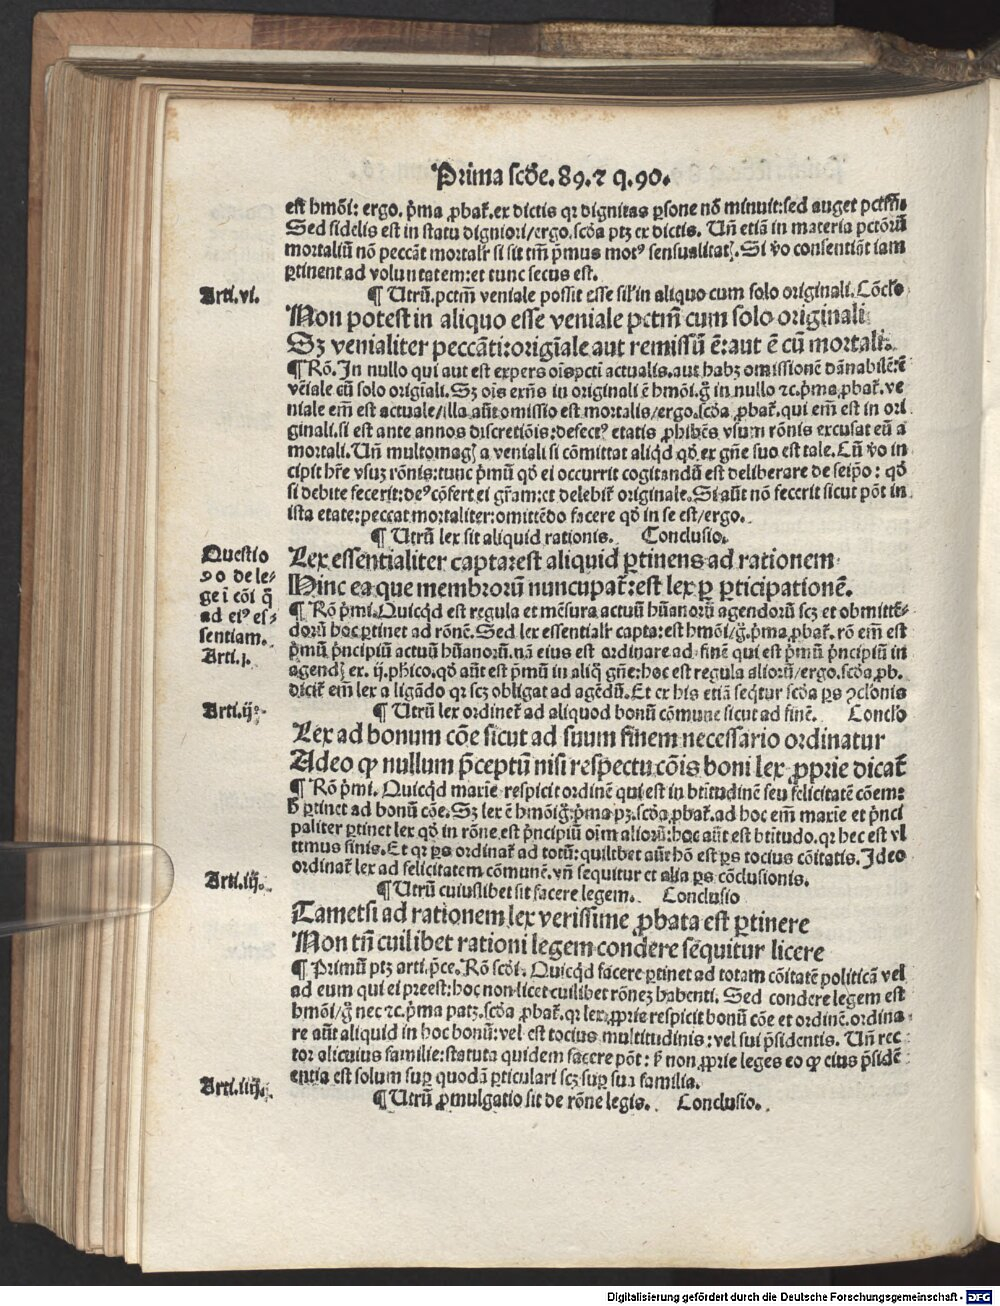 Prima scõe. 89. ⁊ q. 90.
est hmõi: ergo. p̃ma ꝓbat̃. ex dictis qr dignitas ꝑsone nõ minuit: sed auget pctm̃.
Sed fidelis est in statu digniori/ergo. scõa ptꝫ ex dictis. Uñ etiã in materia pctõꝝ
mortaliũ nõ peccãt mortalr̃ si sit tm̃ p̃mus motꝰ sensualitatꝭ. Si ṽo consentiãt iam
ꝑtinent ad voluntatem: et tunc secus est.
Arti. vi.
¶ Utrũ. pctm̃ veniale possit esse sil’ in aliquo cum solo originali. Cõclõ
Non potest in aliquo esse veniale pctm̃ cum solo originali
Sꝫ venialiter peccãti: origĩale aut remissũ ẽ: aut ẽ cũ mortali.
¶ Rõ. In nullo qui aut est expers oĩs pcti actualis. aut habꝫ omissionẽ dãnabilẽ: ẽ
vẽiale cũ solo origĩali. Sꝫ oĩs exñs in originali ẽ hmõi. g̃ in nullo ⁊c. p̃ma ꝓbat̃. ve
niale em̃ est actuale/illa aũt omissio est mortalis/ergo. scõa ꝓbat̃. qui em̃ est in ori
ginali. si est ante annos discretiõis: defectꝰ etatis ꝓhibẽs vsum rõnis excusat eũ a
mortali. Uñ multomagꝭ a veniali si cõmittat aliq̃d qd̃ ex gñe suo est tale. Cũ ṽo in
cipit hr̃e vsuꝫ rõnis: tunc p̃mũ qd̃ ei occurrit cogitandũ est deliberare de seip̃o: qd̃
si debite fecerit: deꝰ cõfert ei gr̃am: et delebit̃ originale. Si aũt nõ fecerit sicut põt in
ista etate: peccat mortaliter: omittẽdo facere qd̃ in se est/ergo.
¶ Utrũ lex sit aliquid rationis. Conclusio.
Questio
90 de le⸗
ge ĩ cõi q̃
ad eiꝰ es⸗
sentiam.
Arti. j.
Lex essentialiter capta: est aliquid ꝑtinens ad rationem
Hinc ea que membrorũ nuncupat̃: est lex ꝑ ꝑticipationẽ.
¶ Rõ p̃mi. Quicq̃d est regula et mẽsura actuũ hũanorũ agendorũ scꝫ et obmittẽ⸗
dorũ hoc ꝑtinet ad rõnẽ. Sed lex essentialr̃ capta: est hmõi/g̃. p̃ma ꝓbat̃. rõ em̃ est
p̃mũ p̃ncipiũ actuũ hũanorũ. nã eius est ordinare ad finẽ qui est p̃mũ p̃ncipiũ in
agendꝭ ex. ij. phico. qd̃ aũt est p̃mũ in aliq̃ gñe: hoc est regula aliorũ/ergo. scõa ꝓb.
dicit̃ em̃ lex a ligãdo qr scꝫ obligat ad agẽdũ. Et ex his etiã seq̃tur scõa ꝑs ꝯclõnis
Arti. ij.
¶ Utrũ lex ordinet̃ ad aliquod bonũ cõmune sicut ad finẽ. Conclõ
Lex ad bonum cõe sicut ad suum finem necessario ordinatur
Adeo ꝙ nullum p̃ceptũ nisi respectu cõis boni lex ꝓprie dicat̃
¶ Rõ p̃mi. Quicq̃d maxie respicit ordinẽ qui est in btitudinẽ seu felicitatẽ cõem:
h̃ ꝑtinet ad bonũ cõe. Sꝫ lex ẽ hmõi g̃. p̃ma pꝫ. scõa ꝓbat̃. ad hoc em̃ maxie et p̃nci
paliter ꝑtinet lex qd̃ in rõne est p̃ncipiũ oĩm aliorũ: hoc aũt est btitudo. qr hec est vl
timus finis. Et qr ꝑs ordinat̃ ad totũ: quilibet aũt hõ est ꝑs tocius cõitatis. Ideo
ordinat̃ lex ad felicitatem cõmunẽ. vñ sequitur et alia ꝑs cõclusionis.
Arti. iij.
¶ Utrũ cuiuslibet sit facere legem. Conclusio
Tametsi ad rationem lex verissime ꝓbata est ꝑtinere
Non tñ cuilibet rationi legem condere sẽquitur licere
¶ Primũ ptꝫ arti. p̃ce. Rõ scõi. Quicq̃d facere ꝑtinet ad totam cõitatẽ politicã vel
ad eum qui ei preest: hoc non licet cuilibet rõneꝫ habenti. Sed condere legem est
hmõi/g̃ nec ⁊c. p̃ma patꝫ. scõa ꝓbat̃. qr lex ꝓprie respicit bonũ cõe et ordinẽ. ordina
re aũt aliquid in hoc bonũ: vel est tocius multitudinis: vel sui p̃sidentis. Uñ rec
tor alicuius familie: statuta quidem facere põt: s̃ non ꝓprie leges eo ꝙ eius p̃sidẽ
entia est solum suꝑ quodã ꝑticulari scꝫ suꝑ sua familia.
Arti. iiij.
¶ Utrũ ꝓmulgatio sit de rõne legis. Conclusio.
Digitalisierung gefördert durch die Deutsche Forschungsgemeinschaft - DFG